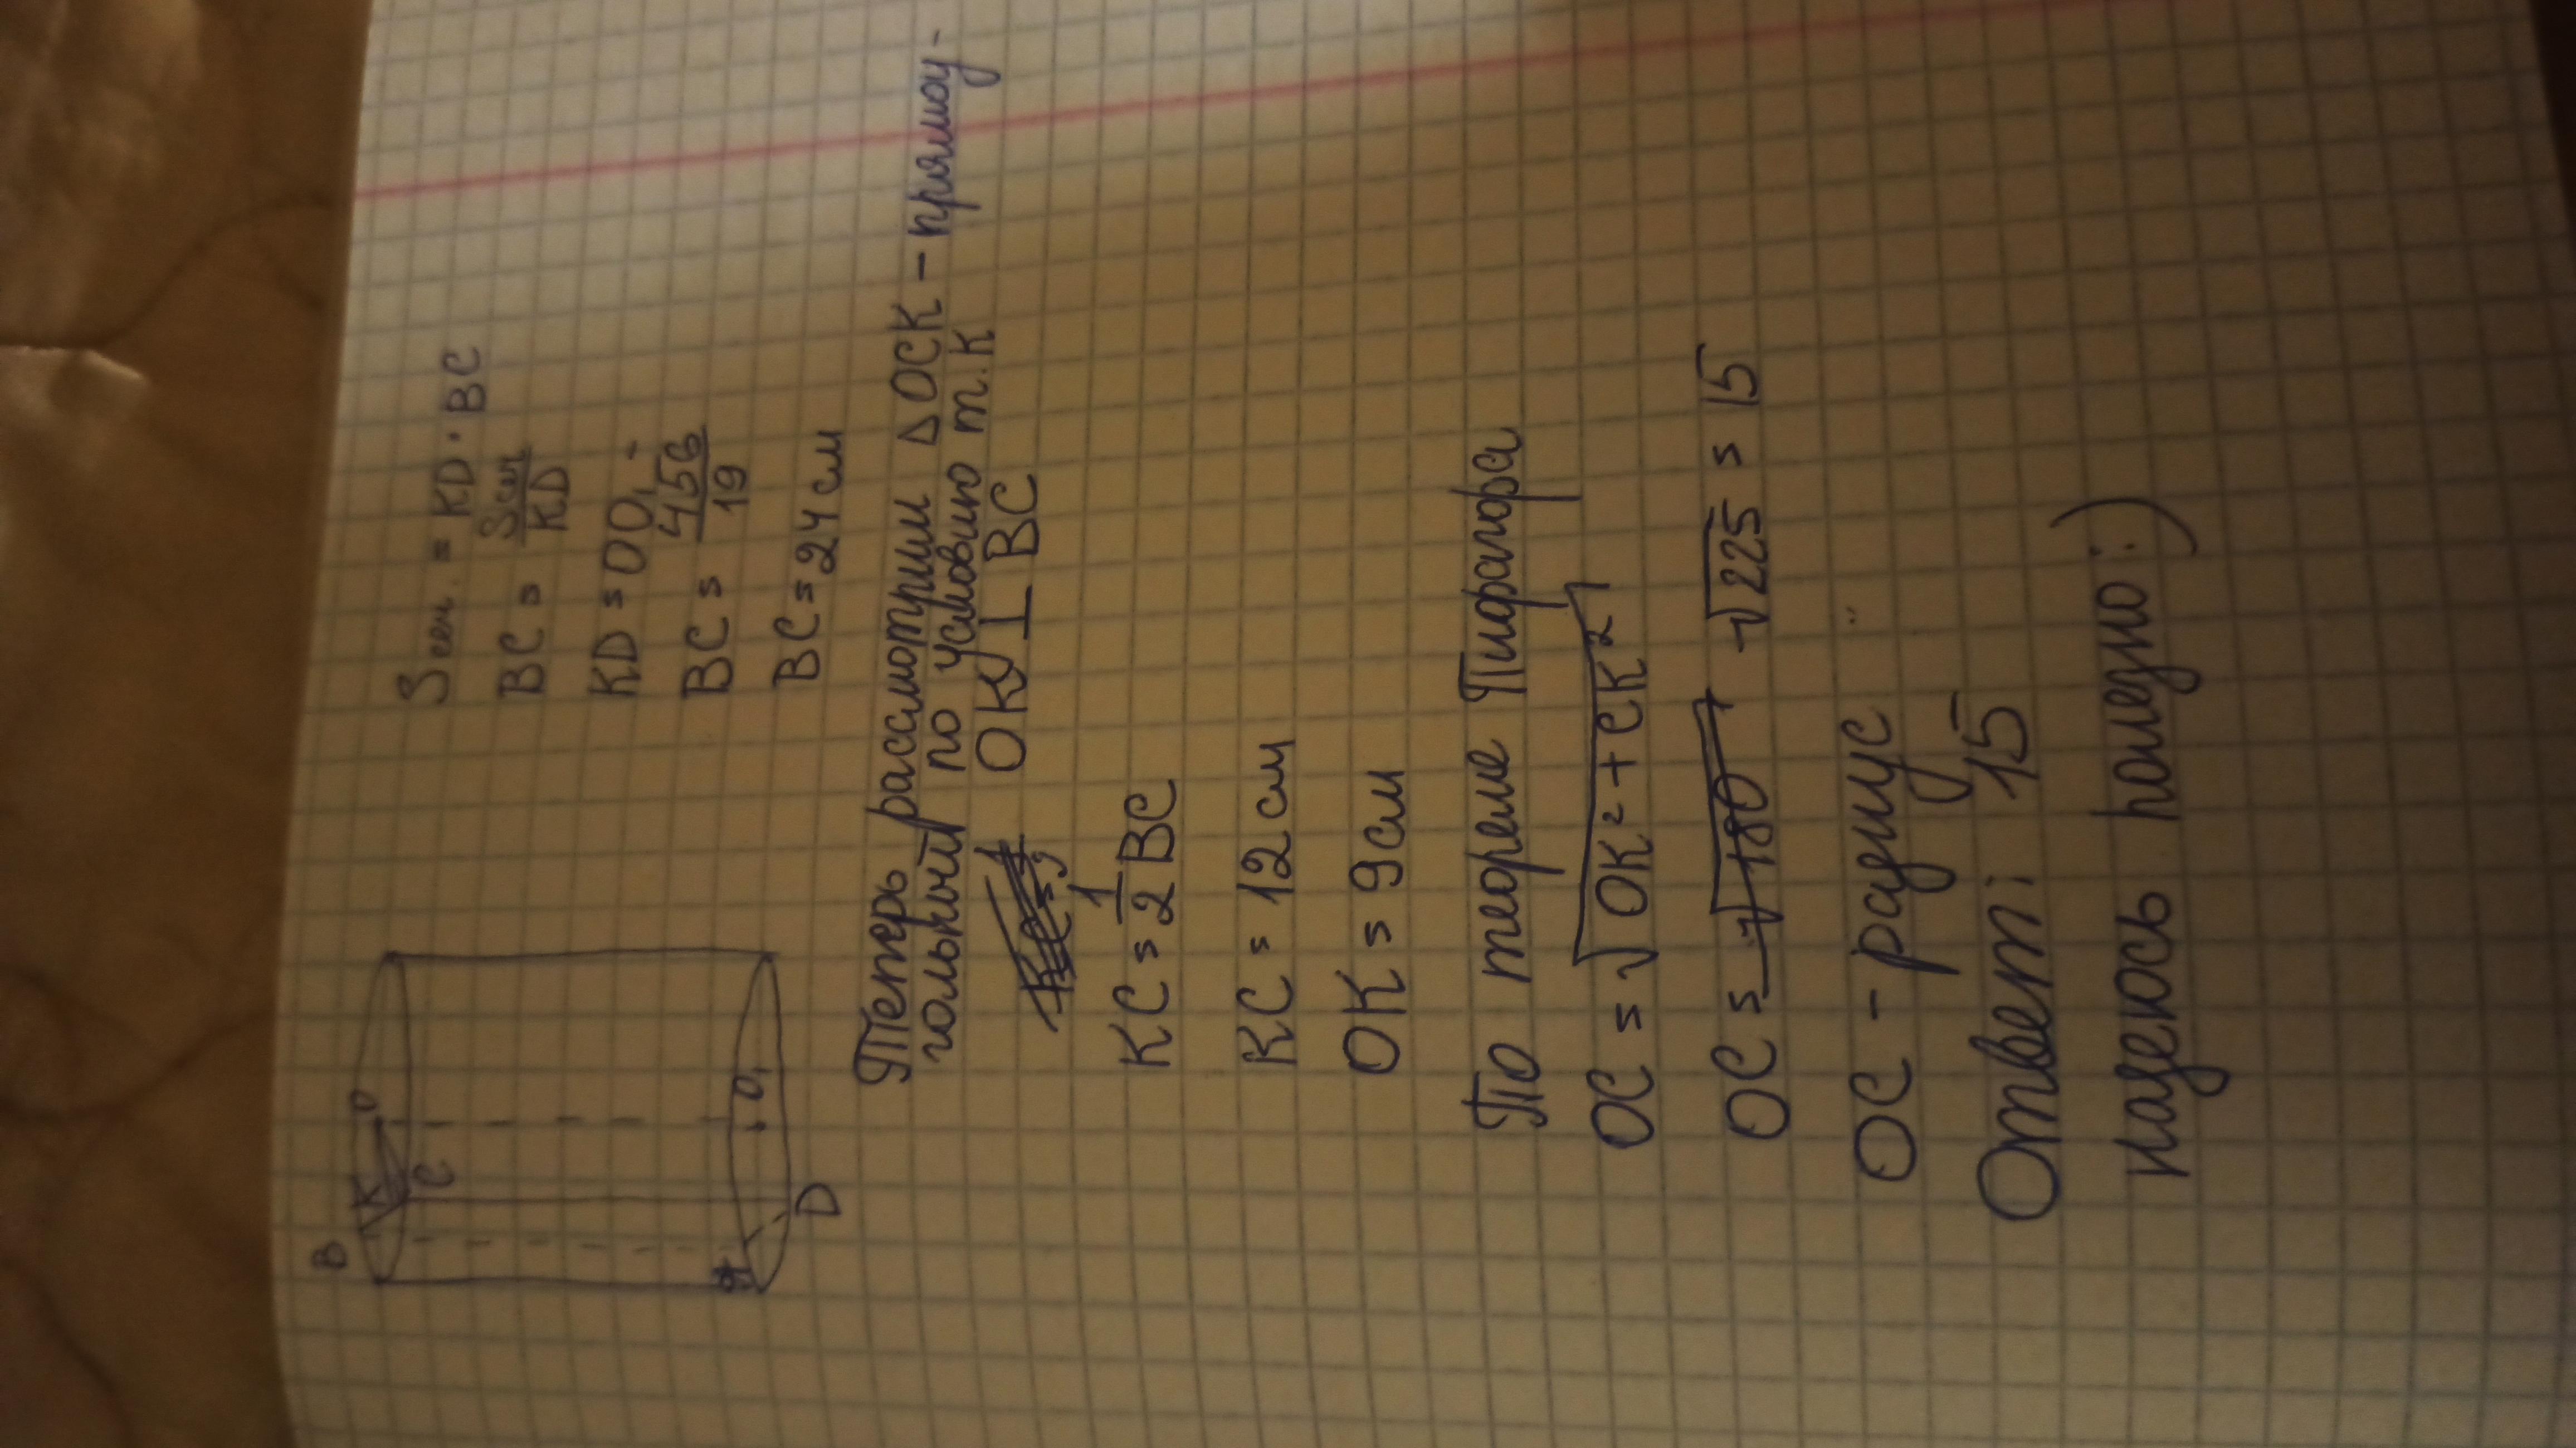 B
K
O
C
A
D
O₁
Sсеч. = KD · BC
BC = Sсеч / KD
KD = OO₁
BC = 456 / 19
BC = 24 см
Теперь рассмотрим Δ OCK – прямоу-
гольный по условию т.к
OK ⊥ BC
KC = 1/2 BC
KC = 12 см
OK = 9 см
По теореме Пифагора
OC = √OK² + CK²
OC = √225 = 15
OC – радиус
Ответ: 15
надеюсь полезно :)